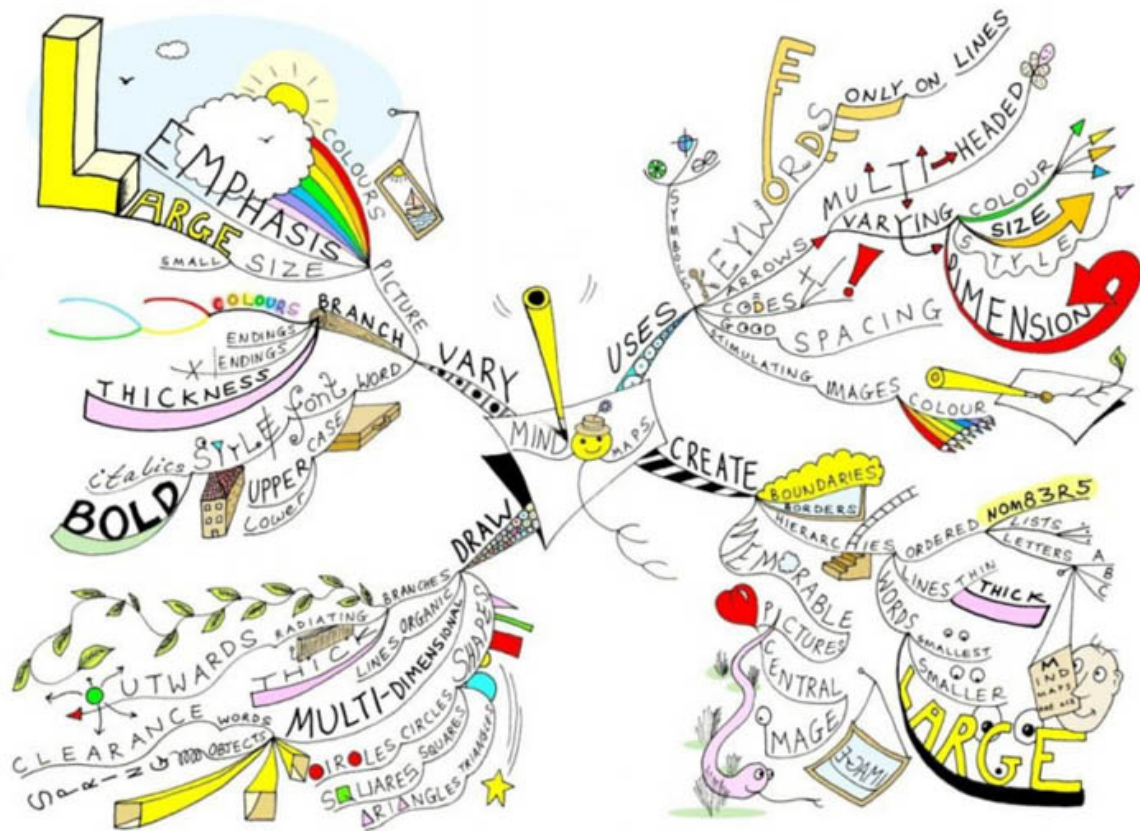 MIND MAPS
VARY
PICTURE
EMPHASIS
COLOURS
SIZE
LARGE
SMALL
BRANCH
COLOURS
ENDINGS
ENDINGS
THICKNESS
WORD
font
STYLE
italics
BOLD
CASE
UPPER
Lower
USES
SYMBOLS
KEYWORDS
ONLY ON LINES
ARROWS
MULTI HEADED
VARYING
COLOUR
SIZE
STYLE
DIMENSION
CODES
GOOD SPACING
STIMULATING IMAGES
COLOUR
CREATE
BOUNDARIES
BORDERS
HIERARCHIES
ORDERED
NOM83R5
LISTS
LETTERS
A
B
C
LINES
THIN
THICK
WORDS
SMALLEST
SMALLER
LARGE
MIND
MAPS
MEMORABLE
PICTURES
CENTRAL
IMAGE
IMAGE
DRAW
BRANCHES
RADIATING
OUTWARDS
ORGANIC
LINES
THICK
MULTI-DIMENSIONAL
WORDS
CLEARANCE
OBJECTS
SHAPES
CIROLES CIRCLES
SQUARES SQUARES
TRIANGLES